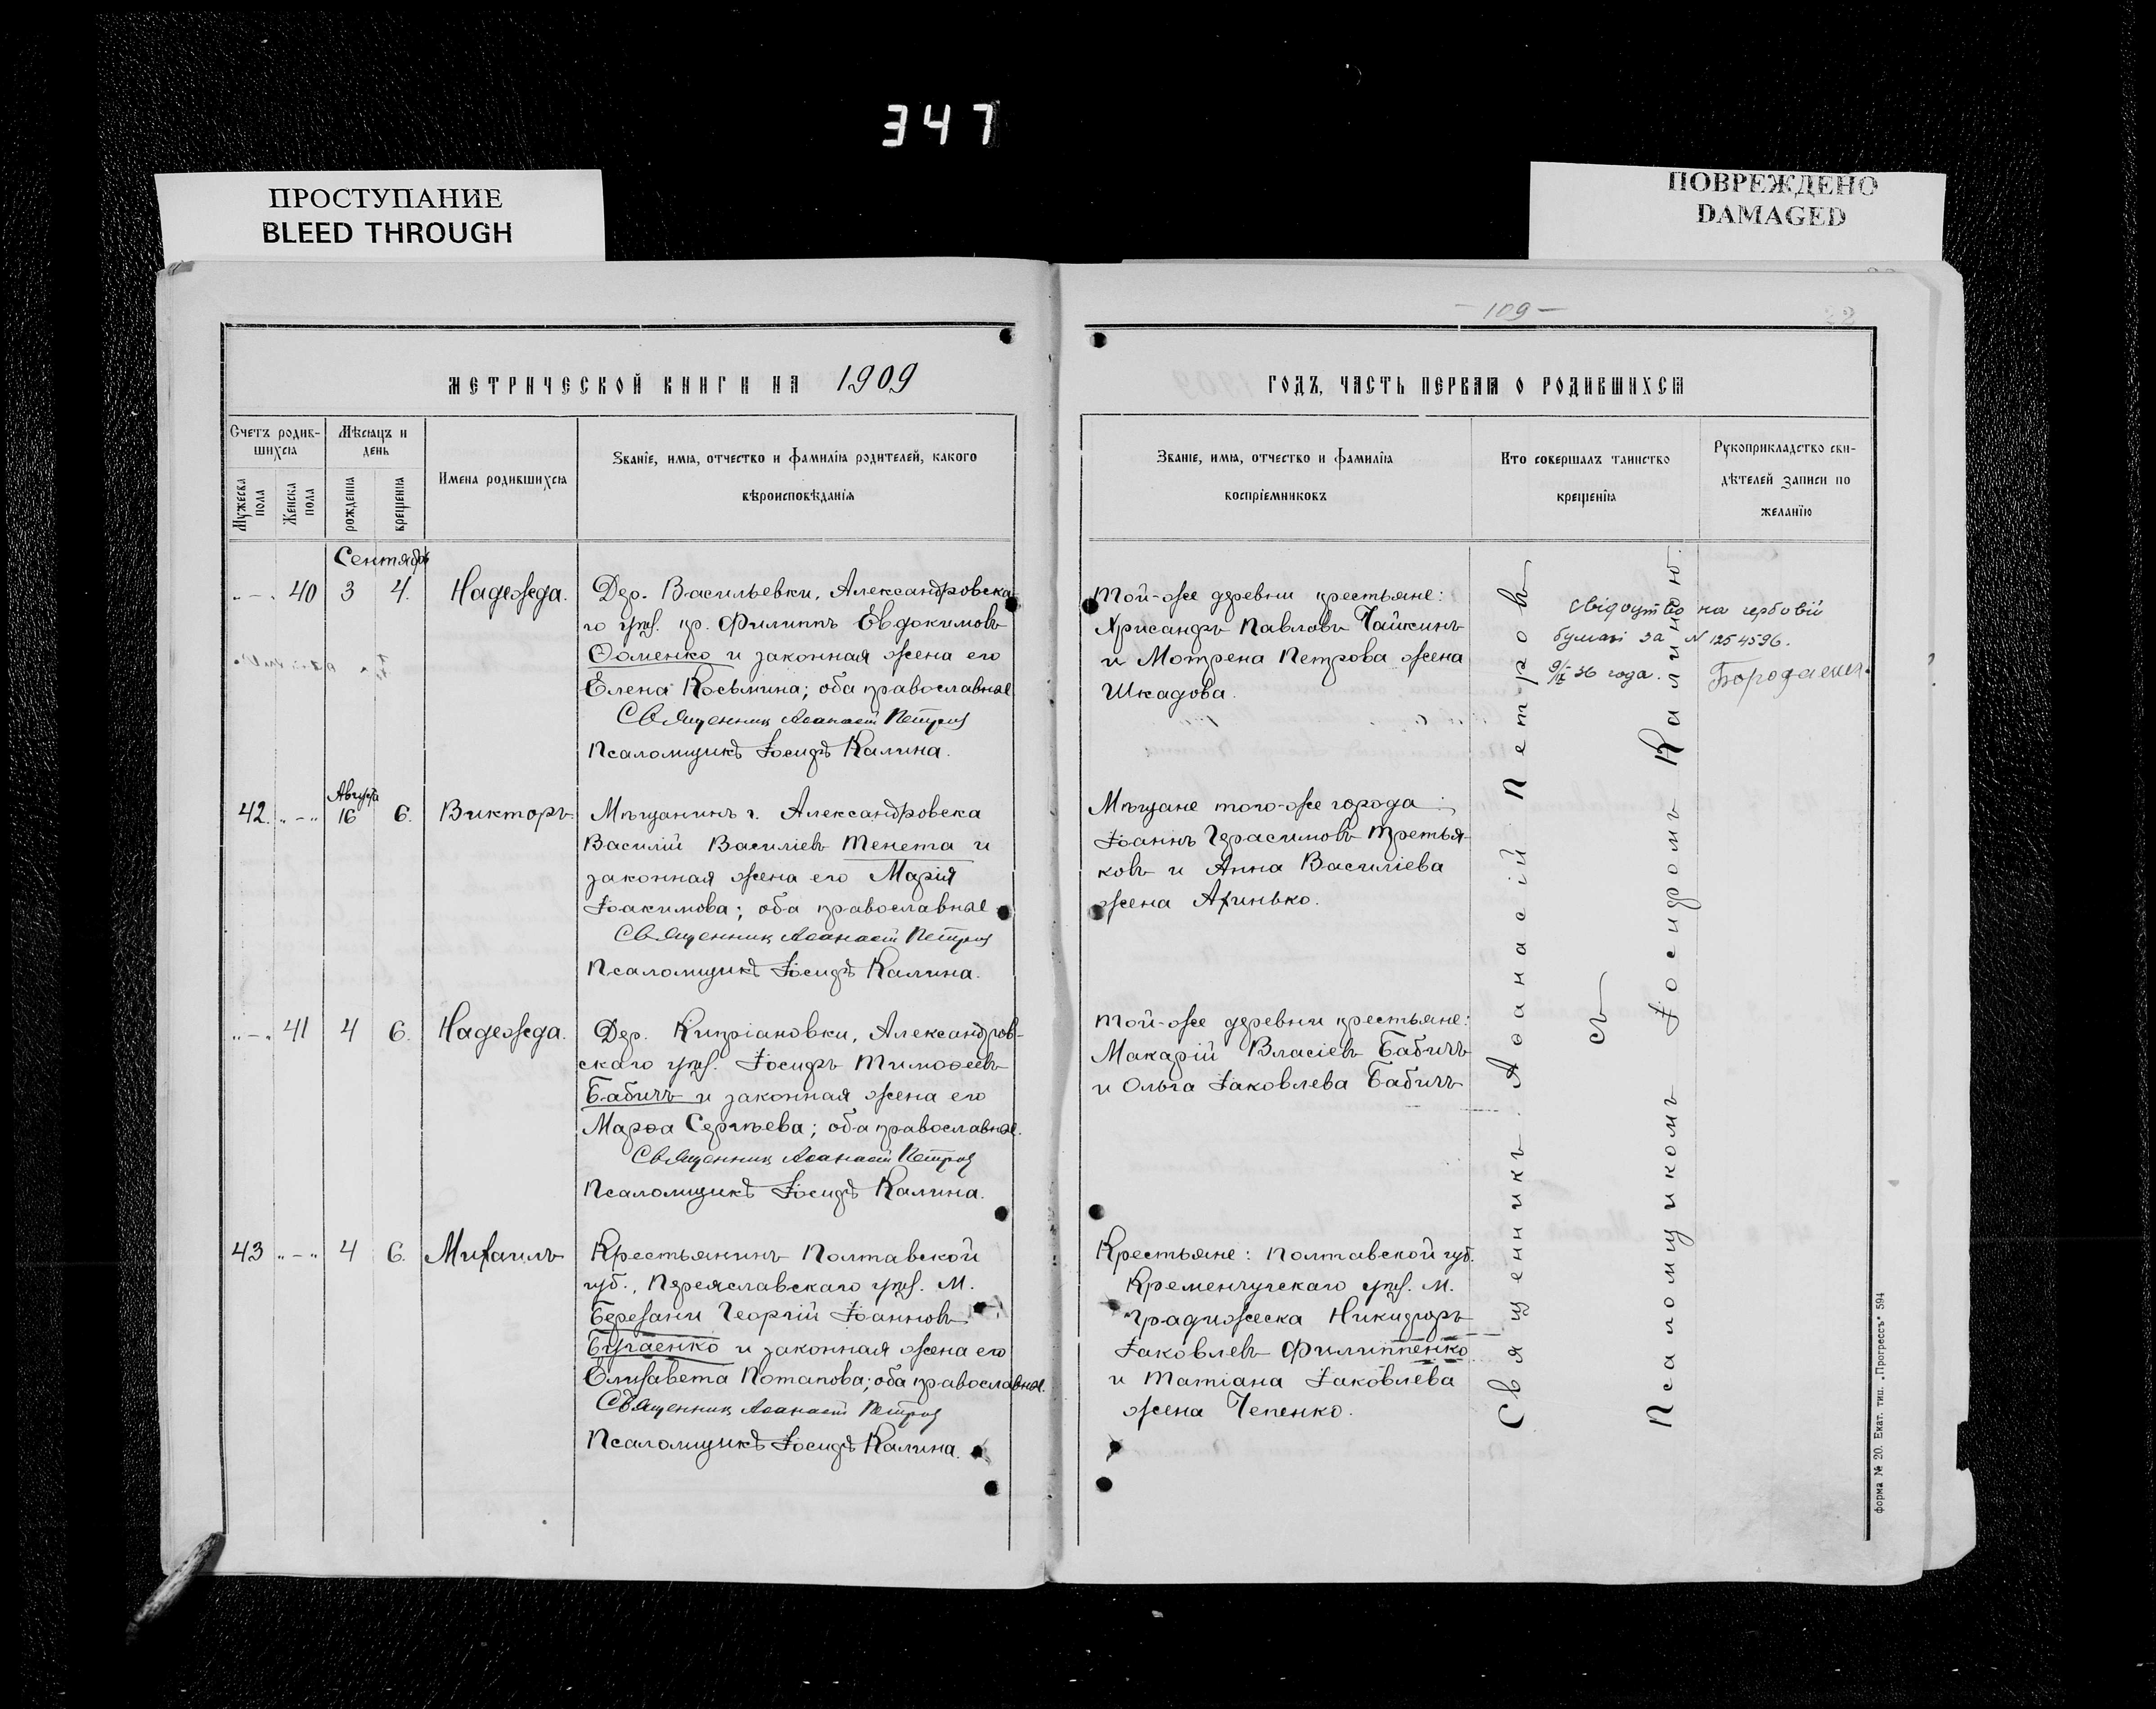 347
ПРОСТУПАНИЕ
BLEED THROUGH
ПОВРЕЖДЕНО
DAMAGED
- 109 -
МЕТРИЧЕСКОЙ КНИГИ НА 1909
ГОДЪ, ЧАСТЬ ПЕРВАЯ О РОДИВШИХСЯ
Счетъ родив-
шихся
Мужеска пола
Женска пола
Мѣсяцъ и
день
рожденія
крещенія
Имена родившихся
Званіе, имя, отчество и фамилія родителей, какого
вѣроисповѣданія
Званіе, имя, отчество и фамилія
воспріемниковъ
Кто совершалъ таинство
крещенія
Рукоприкладство сви-
дѣтелей записи по
желанію
Сентябрь
„-„ 40 3 4. Надежда.
Дер. Васильевки, Александровска-
го уѣз. кр. Филиппъ Евдокимовъ
Ѳоменко и законная жена его
Елена Косьмина; оба православные
Священникъ Аѳанасій Петровъ
Псаломщикъ Іосифъ Калина.
Той-же деревни крестьяне:
Хрисанфъ Павловъ Чайкинъ
и Мотрена Петрова жена
Шкадова.
свідоутво на гербовій
бумазі за N 1254596.
9/IX 36 года.
Августа
42. „-„ 16 6. Викторъ.
Мѣщанинъ г. Александровска
Василій Василіевъ Тенета и
законная жена его Марія
Іоакимова; оба православные.
Священникъ Аѳанасій Петровъ
Псаломщикъ Іосифъ Калина.
Мѣщане того-же города:
Іоаннъ Герасимовъ Третья-
ковъ и Анна Василіева
жена Ахинько.
„-„ 41 4 6. Надежда.
Дер. Кипріановки, Александров-
скаго уѣз. Іосифъ Тимоѳеевъ
Бабичъ и законная жена его
Марѳа Сергѣева; оба православные.
Священникъ Аѳанасій Петровъ
Псаломщикъ Іосифъ Калина.
Той-же деревни крестьяне:
Макарій Власіевъ Бабичъ
и Ольга Іаковлева Бабичъ
43 „-„ 4 6. Михаилъ
Крестьянинъ Полтавской
губ., Переяславскаго уѣз. М.
Березани Георгій Іоанновъ
Бугаенко и законная жена его
Елизавета Потапова; оба православные.
Священникъ Аѳанасій Петровъ
Псаломщикъ Іосифъ Калина.
Крестьяне: Полтавской губ.
Кременчугскаго уѣз. М.
Градижеска Никифоръ
Іаковлевъ Филиппенко
и Татіана Іаковлева
жена Чепенко.
Священникъ Аѳанасій Петровъ
съ
Псаломщикомъ Іосифомъ Калиною.
Форма № 20. Екат. тип. „Прогрессъ“ 594